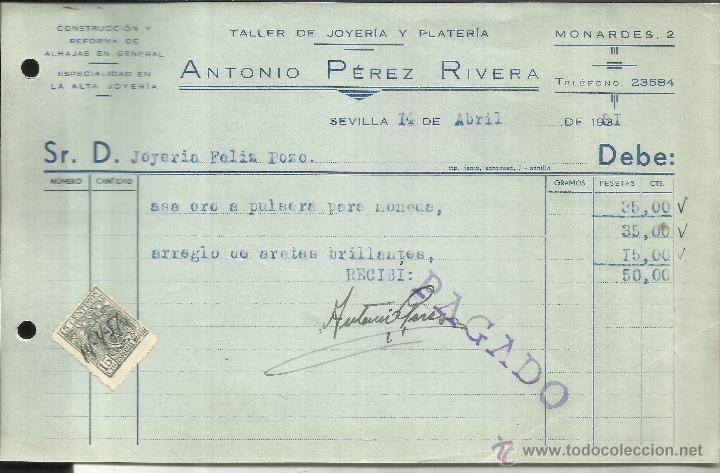 CONSTRUCCIÓN Y
REFORMA DE
ALHAJAS EN GENERAL
ESPECIALIDAD EN
LA ALTA JOYERÍA
TALLER DE JOYERÍA Y PLATERÍA
ANTONIO PÉREZ RIVERA
MONARDES, 2
TELÉFONO, 23584
SEVILLA 14 DE Abril DE 1951
Sr. D. Joyeria Felix Pozo. Debe:
NÚMERO CANTIDAD GRAMOS PESETAS CTS.
asa oro a pulsera para moneda, 35,00
35,00
arreglo de aretes brillantes, 15,00
RECIBI: 50,00
PAGADO
Antonio Perez
todocoleccion.net